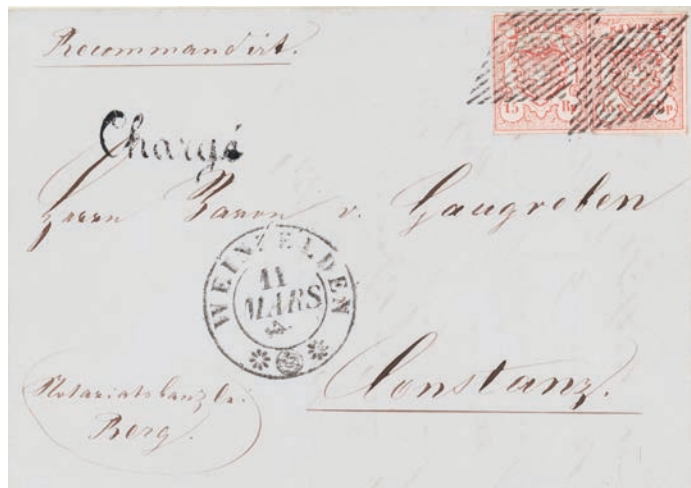 Recommandirt.
15 Rp
Rp.
Chargé
Herrn Baron v. Gaugreben
WEINFELDEN
11
MARS
Constanz.
Notariatskanzlei
Berg.